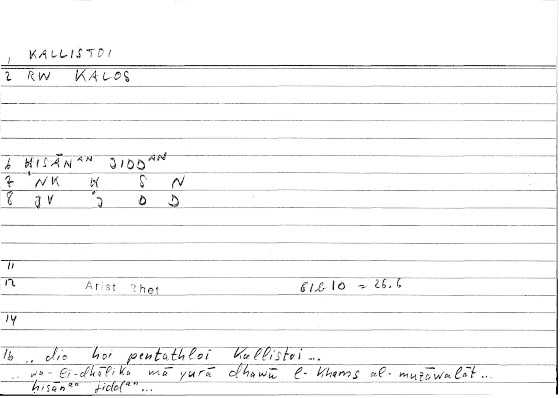 1 KALLISTOI
2 RW KALOS
6 ḤISĀNᵃⁿ JIDDᵃⁿ
7 NK Ḥ S N
8 JV J D D
11
12 Arist Rhet 61b10 = 26.6
14
16 .. dio hoi pentathloi kallistoi ...
.. wa-li-dhālika mā yurā dhawū l-khams al-muzāwalāt ...
ḥisānᵃⁿ jiddᵃⁿ ...